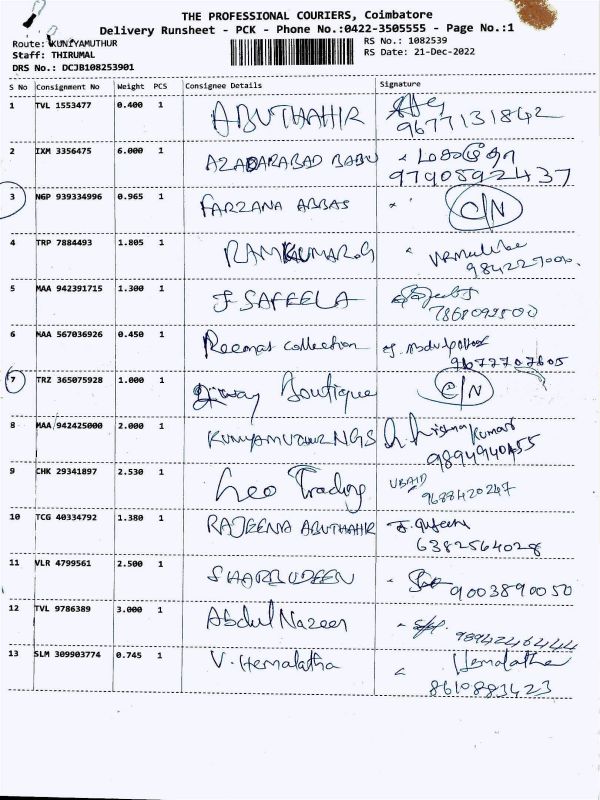 THE PROFESSIONAL COURIERS, Coimbatore
Delivery Runsheet - PCK - Phone No.:0422-3505555 - Page No.:1
Route: KUNIYAMUTHUR RS No.: 1082539
Staff: THIRUMAL RS Date: 21-Dec-2022
DRS No.: DCJB108253901
S No Consignment No Weight PCS Consignee Details Signature
1 TVL 1553477 0.400 1 ABUTHAHIR
9677131842
2 IXM 3356475 6.000 1 AZADARABAD BABU
9790592437
3 NGP 939334996 0.965 1 FARZANA ABBAS C/N
4 TRP 7884493 1.805 1 RAMKUMAR.G
5 MAA 942391715 1.300 1 J-SAFEELA
6 MAA 567036926 0.450 1 Reemas collection
9677707605
7 TRZ 365075928 1.000 1 Boutique C/N
8 MAA 942425000 2.000 1 KUNIYAMUTHUR NGS Krishna Kumar
9 CHK 29341897 2.530 1 Leo Trading UBAID
9688420247
10 TCG 40334792 1.380 1 RAJEENA ABUTHAHIR
6382564028
11 VLR 4799561 2.500 1 SHARBUDEEN
9003890050
12 TVL 9786389 3.000 1 Abdul Nazeer
9894246444
13 SLM 309903774 0.745 1 V. Hemalatha Hemalatha
8610883423